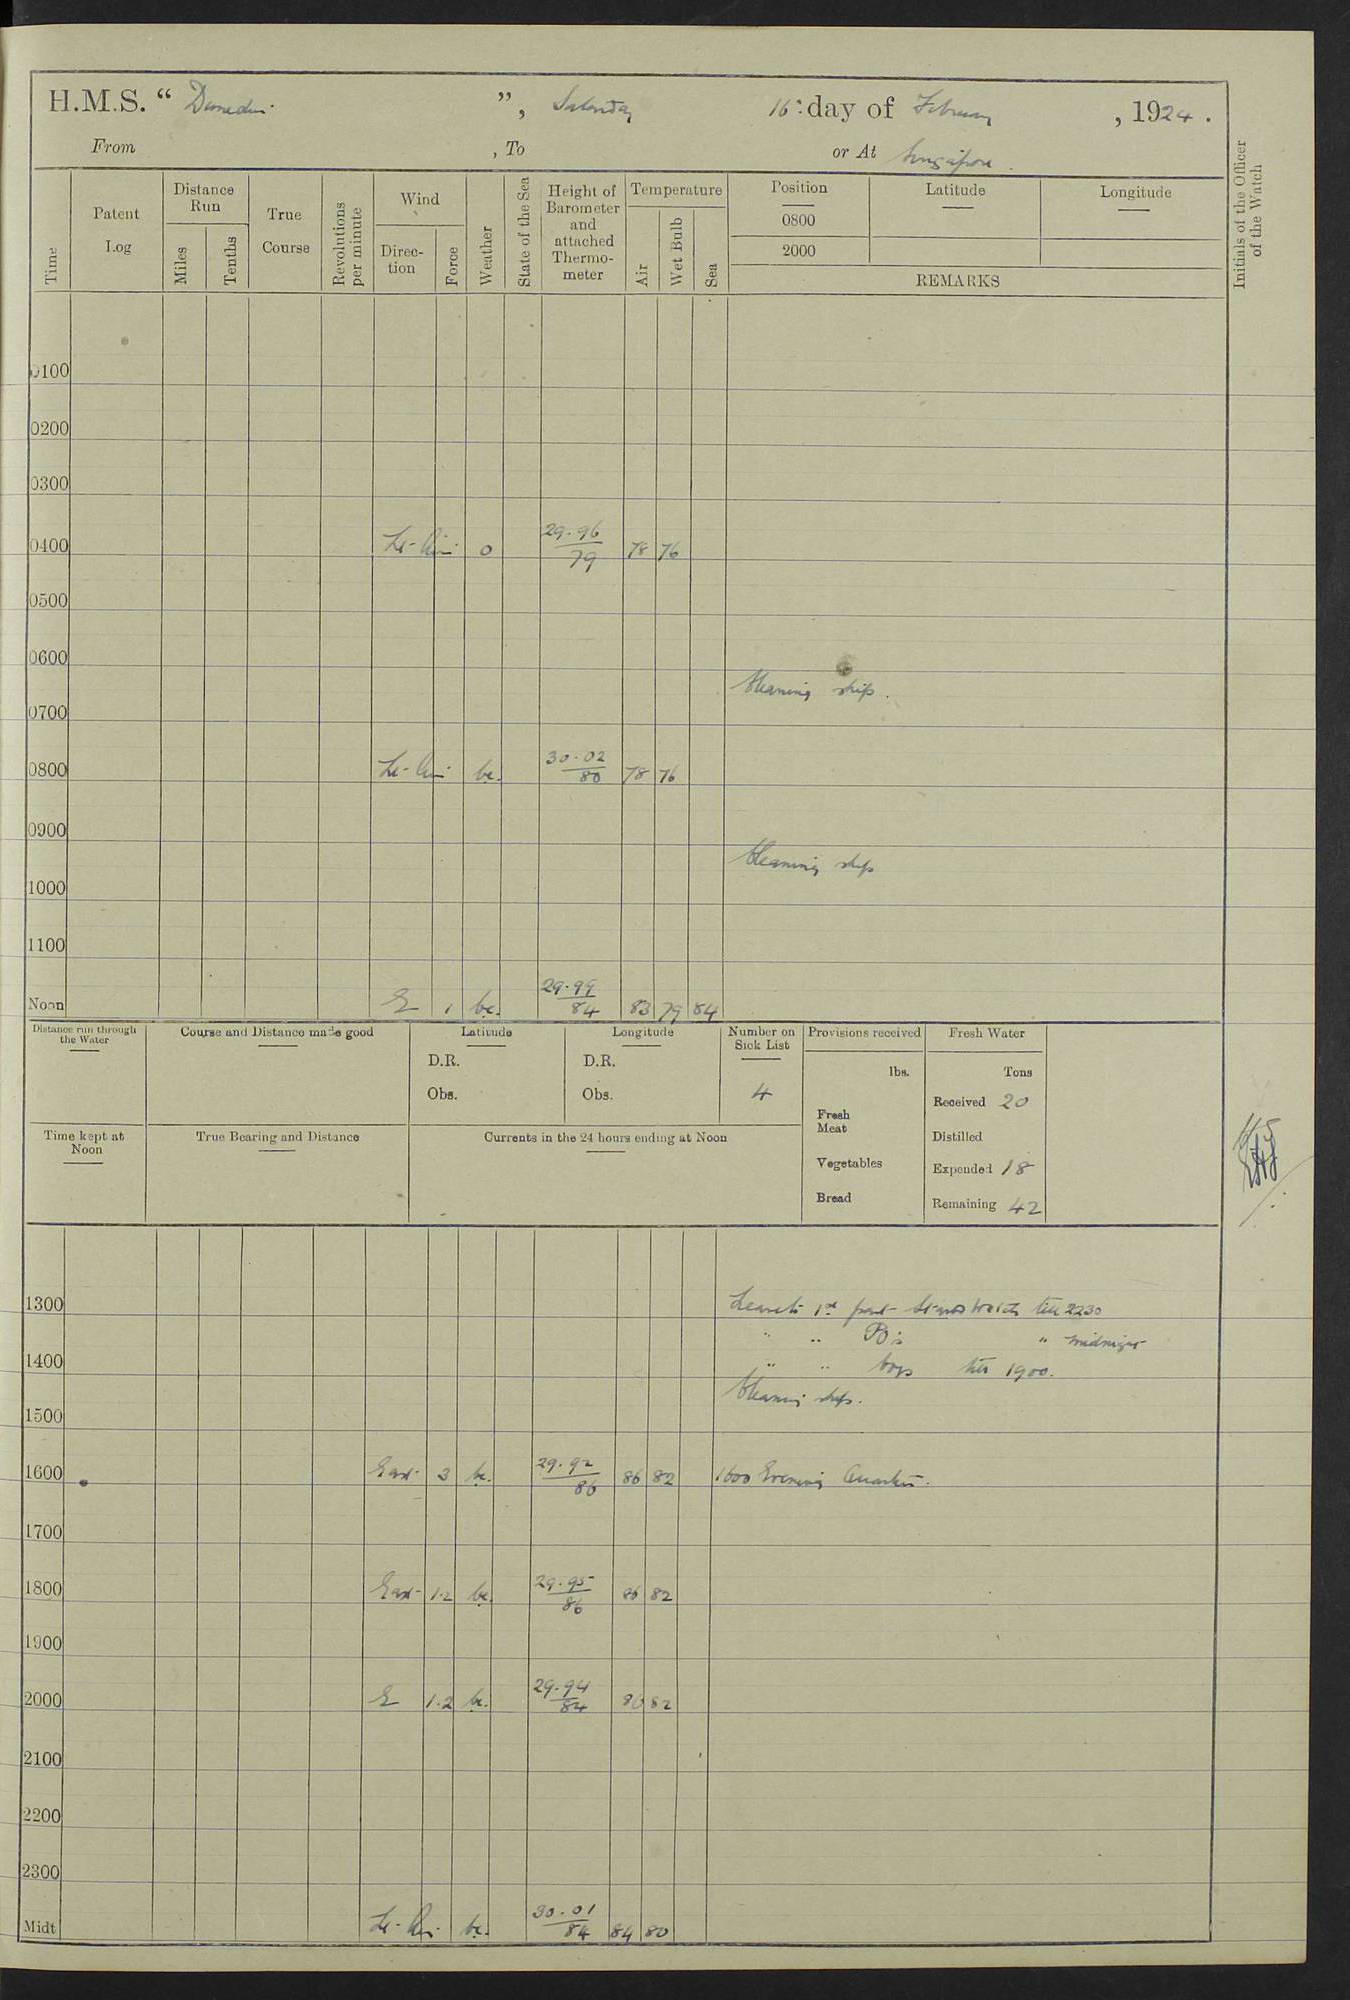 H.M.S. “ Dunedin ”, Saturday 16th day of February, 1924.
From , To or At Singapore.
Time
Patent Log
Distance Run
Miles
Tenths
True Course
Revolutions per minute
Wind
Direction
Force
Weather
State of the Sea
Height of Barometer and attached Thermometer
Temperature
Air
Wet Bulb
Sea
Position
0800
2000
Latitude
Longitude
REMARKS
Initials of the Officer of the Watch
0100
0200
0300
0400 Lt- Airs o 29.96 79 78 76
0500
0600
Cleaning ship.
0700
0800 Lt- Airs bc. 30.02 80 78 76
0900
Cleaning ship
1000
1100
Noon E 1 bc. 29.99 84 83 79 84
Distance run through the Water
Course and Distance made good
Latitude
D.R.
Obs.
Longitude
D.R.
Obs.
Number on Sick List
4
Provisions received
lbs.
Fresh Meat
Vegetables
Bread
Fresh Water
Tons
Received 20
Distilled
Expended 18
Remaining 42
Time kept at Noon
True Bearing and Distance
Currents in the 24 hours ending at Noon
1300 Leave to 1st part Starbd Watch till 2230
" " POs " midnight
1400 " " boys till 1900.
Cleaning ship.
1500
1600 East 3 bc. 29.92 86 86 82 1600 Evening Quarters.
1700
1800 East 1-2 bc. 29.95 86 86 82
1900
2000 E 1.2 bc. 29.94 84 86 82
2100
2200
2300
Midt Lt- Airs bc. 30.01 84 84 80